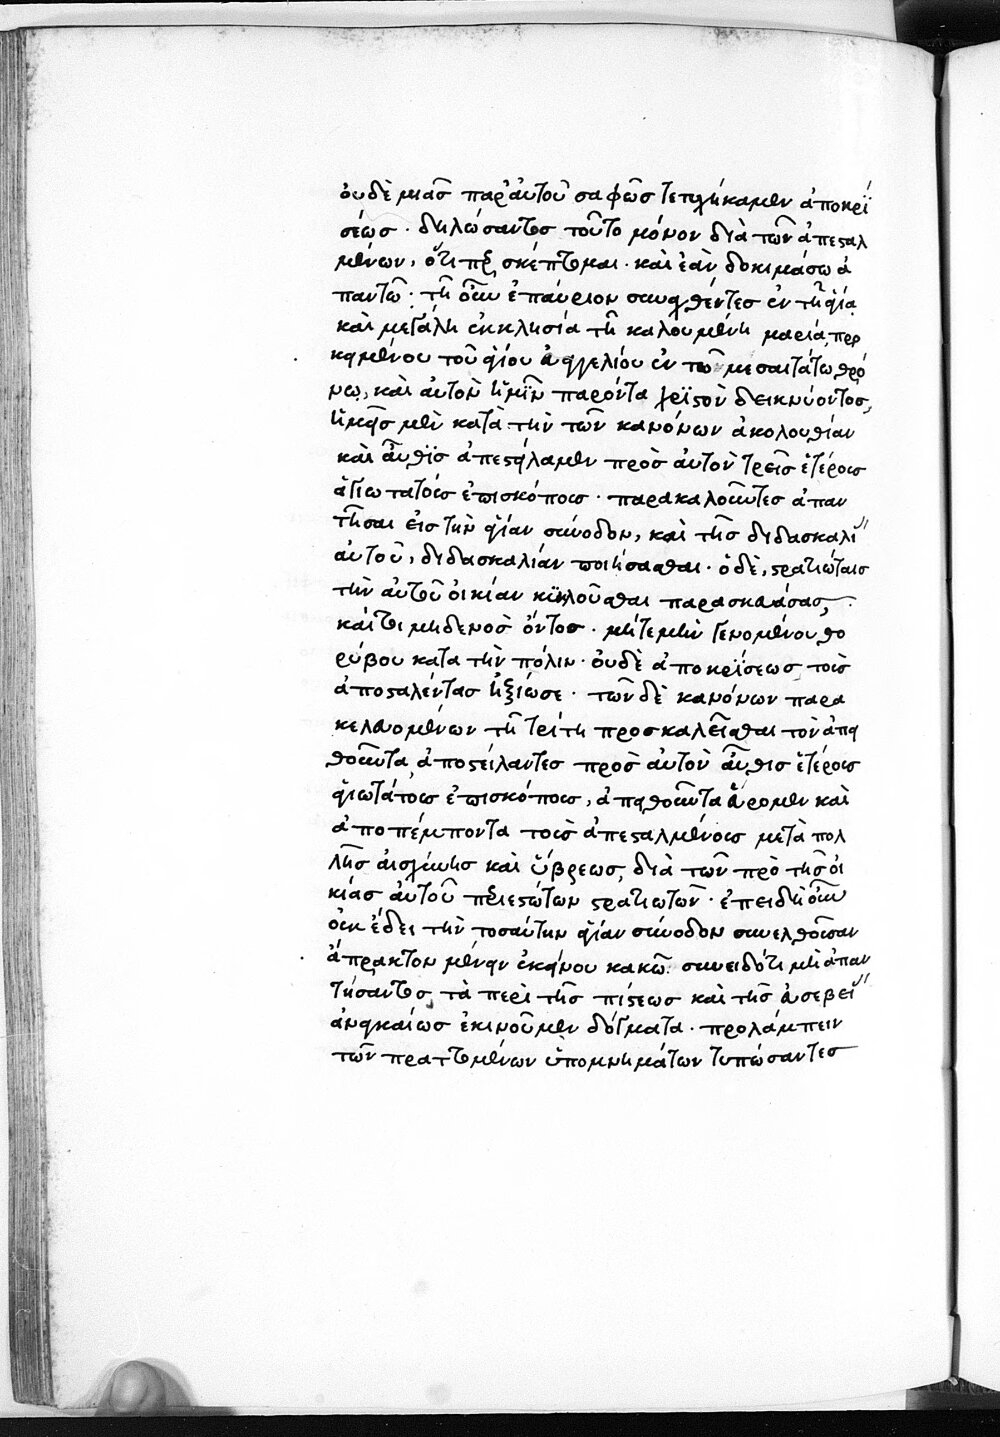 ουδὲ μιᾶσ παρ' ἀυτοῦ σαφῶσ τετυχήκαμεν ἀποκρί
σέωσ · δηλώσαντοσ τοῦτο μόνον διὰ τῶν ἀπεσταλ
μένων, ὅτι περισκέπτομαι · καὶ ἐὰν δοκιμάσω ἀ
παντῶ · τῆ οὖν ἐπαύριον συναχθέντεσ ἐν τῆ ἁγία
καὶ μεγάλη ἐκκλησία τῆ καλουμένη μαρία, προ
κειμένου τοῦ ἁγίου ἐυαγγελίου ἐν τῶ μεσαιτάτω θρό
νω, καὶ ἀυτὸν ἡμῖν παρόντα χριστὸν δεικνύοντοσ,
ἡμεῖσ μὲν κατὰ τὴν τῶν κανόνων ἀκολουθίαν
καὶ ἆυθϊσ ἀπεστείλαμεν πρὸσ ἀυτὸν τρεῖσ ἑτέρουσ
ἁγιωτάτουσ ἐπισκόπουσ · παρακαλοῦντεσ ἀπαν
τῆσαι εἰσ τὴν ἁγίαν σύνοδον, καὶ τῆσ διδασκαλί
ἀυτοῦ, διδασκαλίαν ποιήσασθαι · ὁ δὲ, στρατιώταισ
τὴν ἀυτοῦ οἰκίαν κϋκλοῦσθαι παρασκευάσασ,
καί τοι μηδενὸσ ὄντοσ · μήτε μὴν γενομένου θο
ρύβου κατα τὴν πόλιν · ὀυδὲ ἀποκρϊσεωσ τοὺσ
ἀποσταλέντασ ἠξίωσε · τῶν δὲ κανόνων παρα
κελευομένων τῆ τρίτη προσκαλεῖσθαι τὸν ἀπει
θοῦντα, ἀποστείλαντεσ πρὸσ ἀυτὸν ἆυθισ ἑτέρουσ
ἁγιωτάτουσ ἐπισκόπουσ, ἀπειθοῦντα ἕυρομεν καὶ
ἀποπέμποντα τοὺσ ἀπεσταλμένουσ μετὰ πολ
λῆσ ἀισχύνησ καὶ ὕβρεωσ, διὰ τῶν πρὸ τῆσ οἰ
κίασ ἀυτοῦ περιεστώτων στρατιωτῶν · ἐπειδὴ οὖν
ὀυκ ἔδει τὴν τοσαύτην ἁγίαν σύνοδον συνελθοῦσαν
ἄπρακτον μένειν ἐκείνου κακῶσ συνειδότι μὴ ἀπαν
τήσαντοσ, τὰ περὶ τῆσ πίστεωσ καὶ τῆσ ἐυσεβεί
ἀναγκαίωσ ἐκινοῦμεν δόγματα · προλάμπειν
τῶν πραττομένων ὑπομνημάτων τυπώσαντεσ